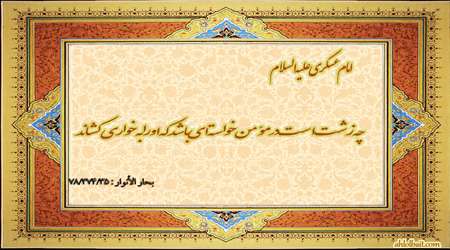 امام عسکری علیه‌السلام
چه زشت است در مؤمن خواسته‌ای باشد که او را به خواری کشاند
بحار الأنوار : ۷۸/۳۷۴/۳۵